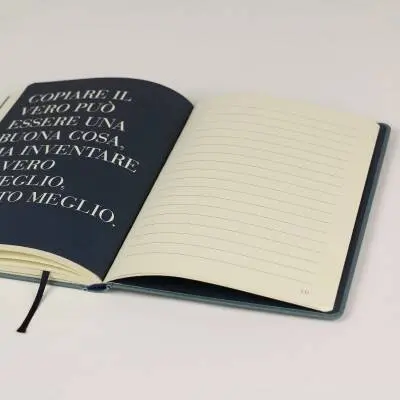 COPIARE IL
VERO PUÒ
ESSERE UNA
BUONA COSA,
MA INVENTARE
VERO
MEGLIO,
TO MEGLIO.